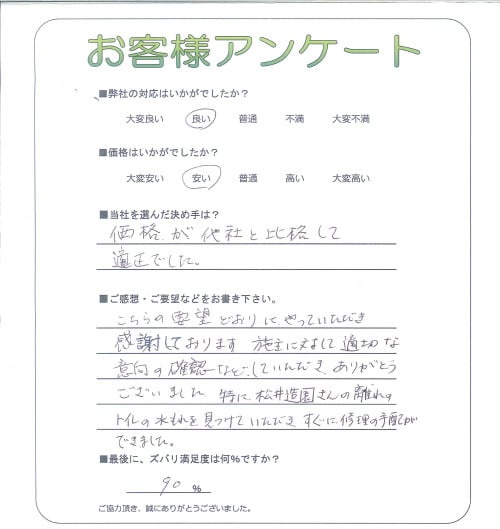 お客様アンケート
■弊社の対応はいかがでしたか？
大変良い 良い 普通 不満 大変不満
■価格はいかがでしたか？
大変安い 安い 普通 高い 大変高い
■当社を選んだ決め手は？
価格が代社と比格して
適正でした。
■ご感想・ご要望などをお書き下さい。
こちらの要望どおりにやっていただき
感謝しております 施主に対して適切な
意向の確認などしていただき、ありがとう
ございました 特に松井造園さんの離れの
トイレの水もれを見つけていただき すぐに修理の手配が
できました。
■最後に、ズバリ満足度は何%ですか？
90 %
ご協力頂き、誠にありがとうございました。